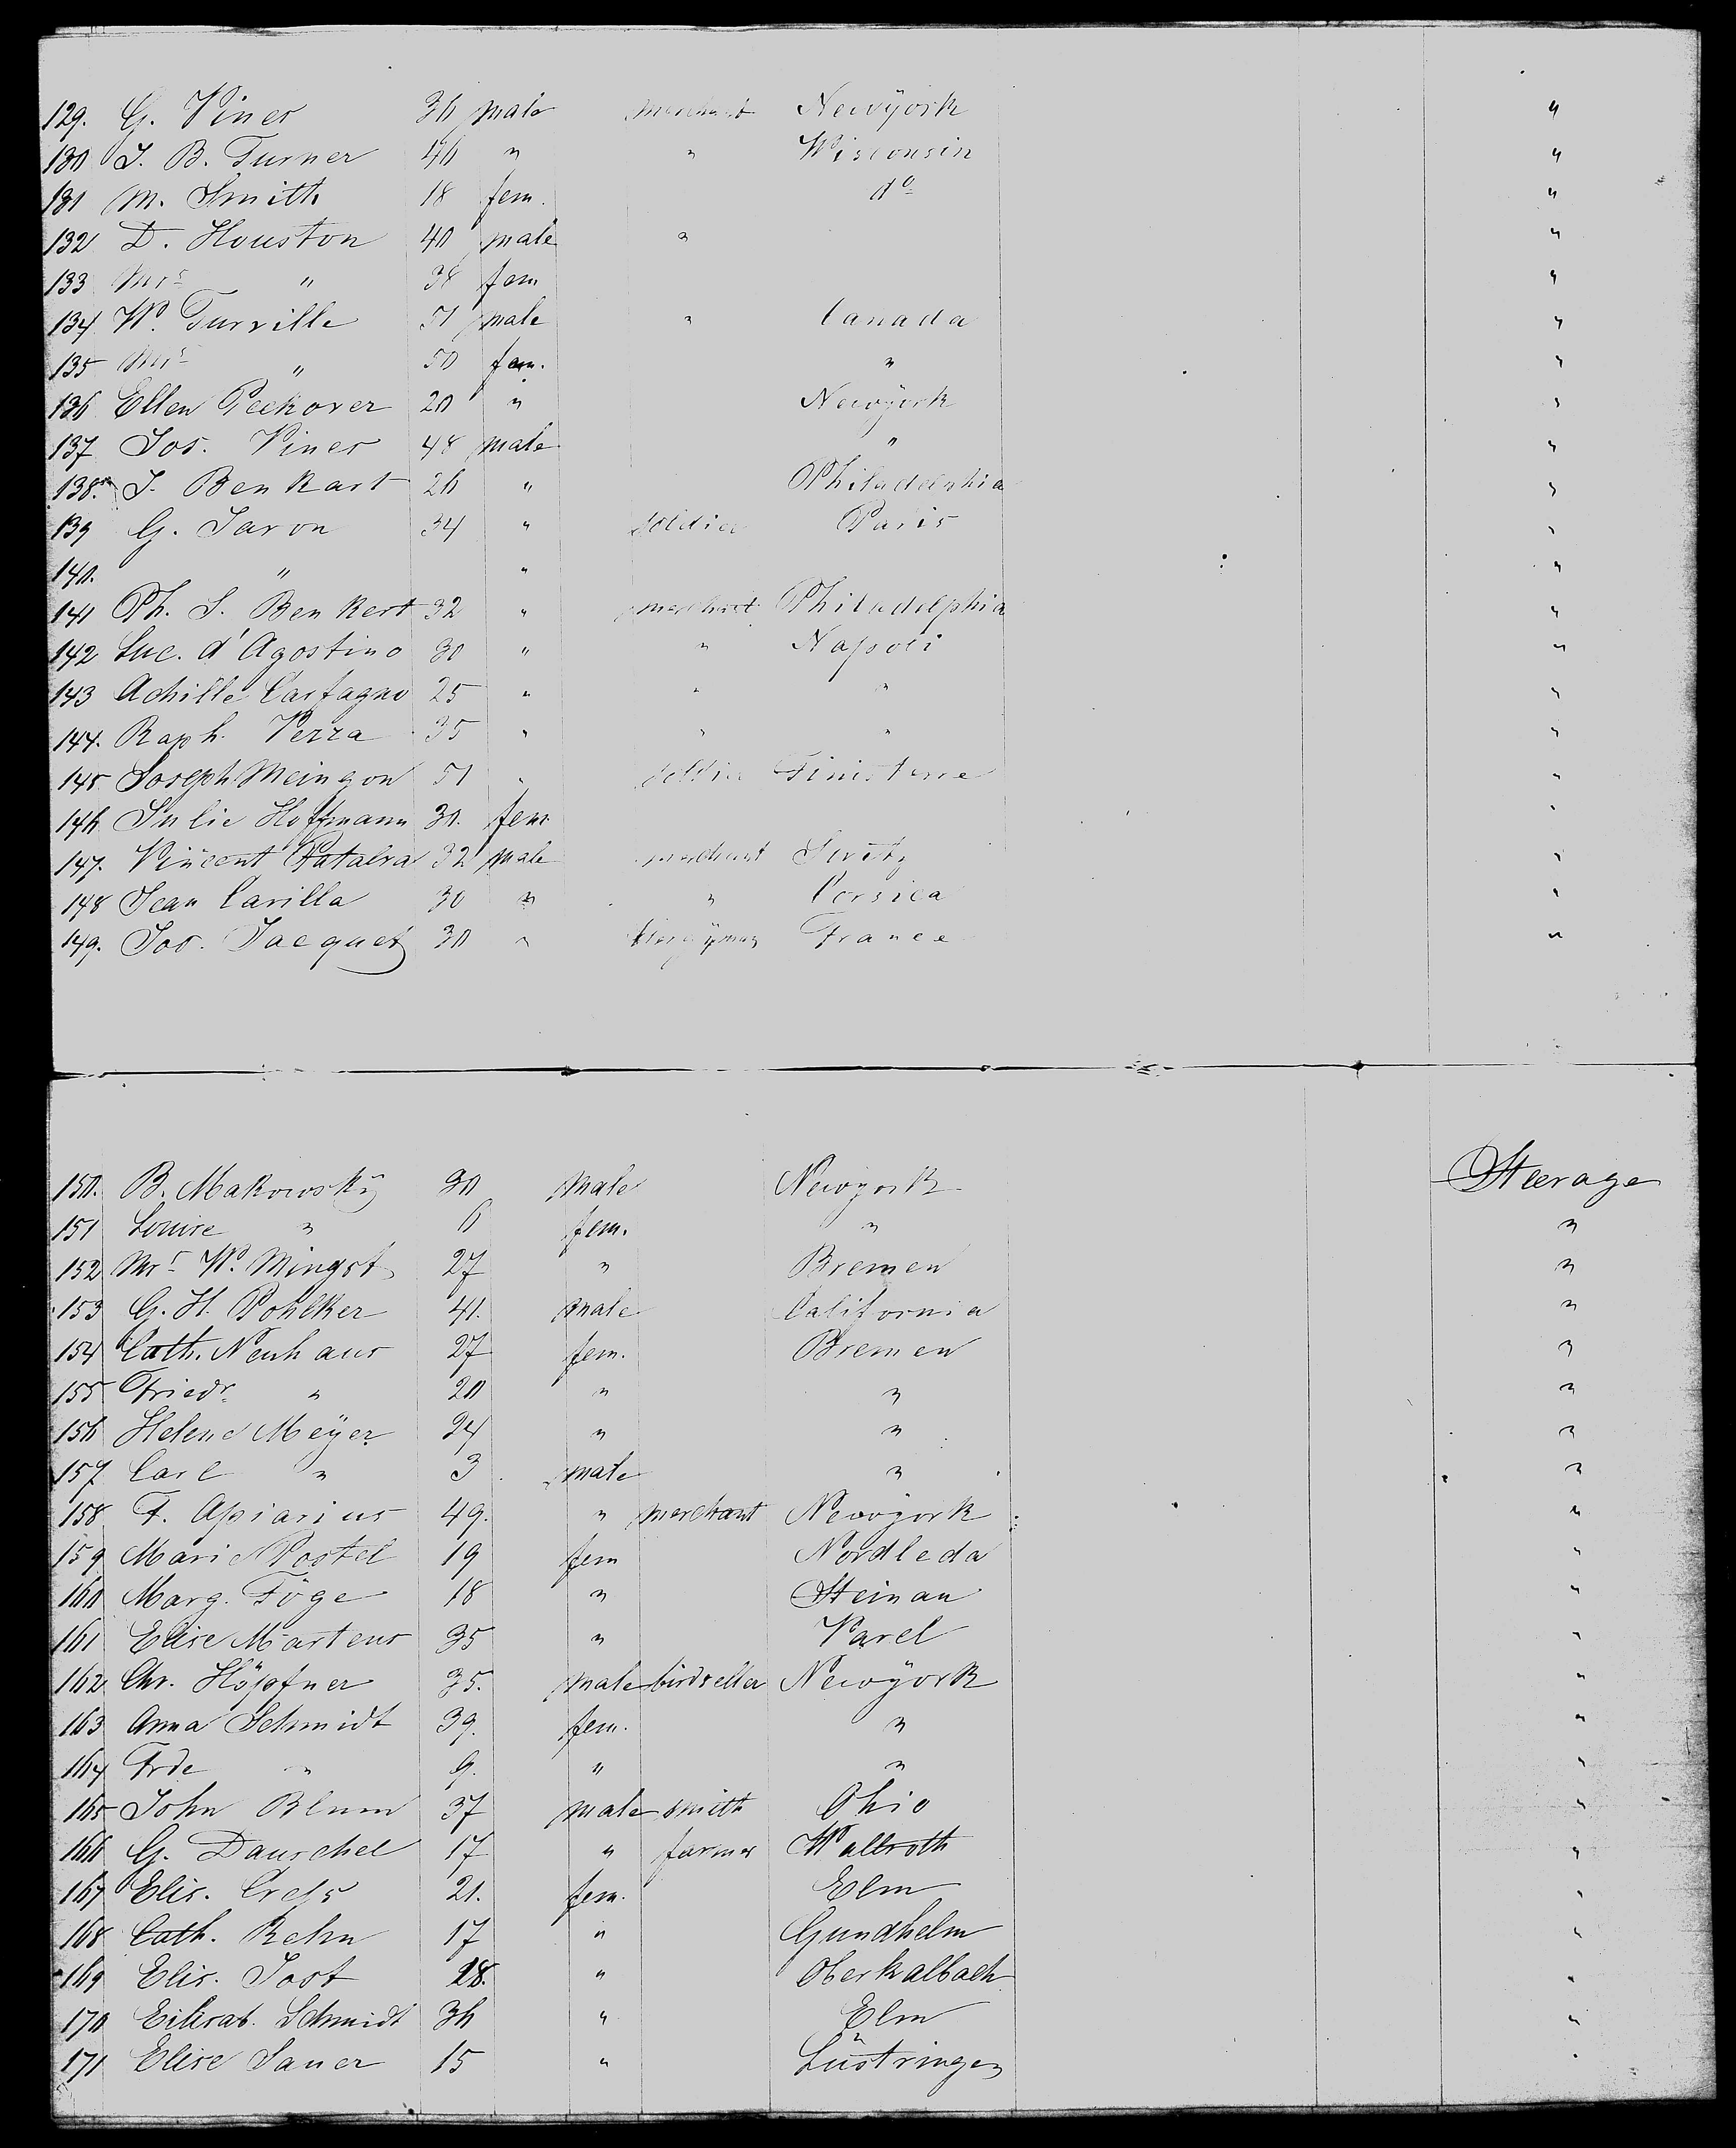 129. G. Viner 36 male merchant Newyork "
130 J. B. Turner 46 " " Wisconsin "
131 M. Smith 18 fem. do "
132 D. Houston 40 male " "
133 Mrs " 38 fem "
134 W. Turville 51 male " Canada "
135 Mrs " 50 fem. " "
136 Ellen Peckover 20 " Newyork "
137 Jos. Viner 48 male " "
138. J. Benkart 26 " Philadelphia "
139 G. Jaron 34 " soldier Paris "
140. " " "
141 Ph. S. Benkert 32 " merchant Philadelphia "
142 Luc. d'Agostino 30 " " Napoli "
143 Achille Carfagno 25 " " " "
144. Raph. Pezza 35 " " " "
145 Joseph Meingon 51 " soldier Finisterre "
146 Julie Hoffmann 30. fem "
147. Vincent 32 male merchant "
148 Jean Carilla 30 " " Corsica "
149. Jos. Jacquet 30 " clergyman France "
150. B. Makowsky 30 male Newyork Steerage
151 Louise " 6 fem. " "
152 Mrs W. Mingst 27 " Bremen "
153 G. H. Pohlker 41. male California "
154 Cath. Neuhaus 27 fem. Bremen "
155 Friedr. " 20 " " "
156 Helene Meÿer 24 " " "
157 Carl " 3 male " "
158 F. Apiarius 49. " merchant Newyork "
159 Marie Postel 19 fem Nordleda "
160 Marg. Föge 18 " Steinau "
161 Elise Martens 35 " Varel "
162 Chr. Höpfner 35. male birdseller Newÿork "
163 Anna Schmidt 39. fem. " "
164 Frde " 9. " " "
165 John Blum 37 male smith Ohio "
166 G. Dauschel 17 " farmer Wallroth "
167 Elis. Cress 21. fem. Elm "
168 Cath. Rehn 17 " Gundhelm "
169 Elis. Jost 28. " Oberkalbach "
170 Elisab. Schmidt 36 " Elm "
171 Elise Sauer 15 " Lüstringen "